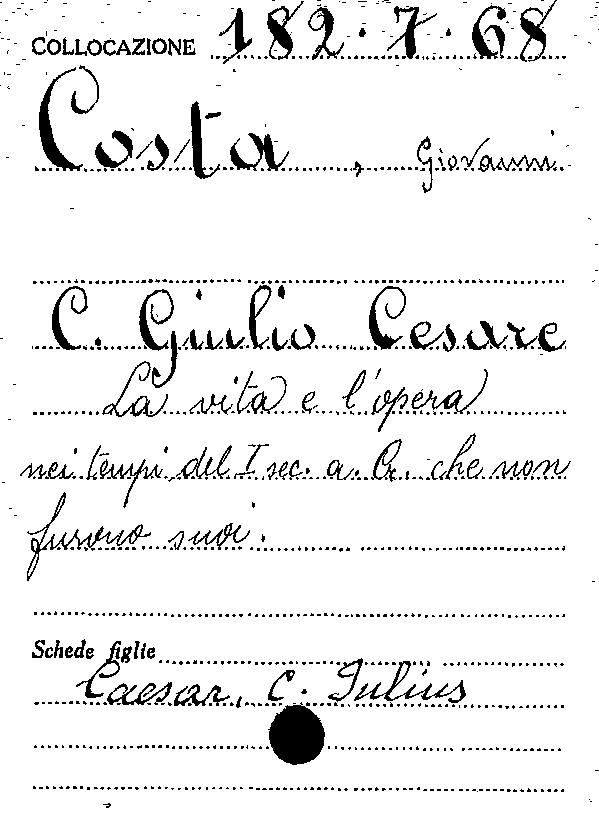 COLLOCAZIONE 182.7.68
Costa, Giovanni
C. Giulio Cesare
La vita e l'opera
nei tempi del I sec. a. Cr. che non
furono suoi.
Schede figlie
Caesar, C. Iulius